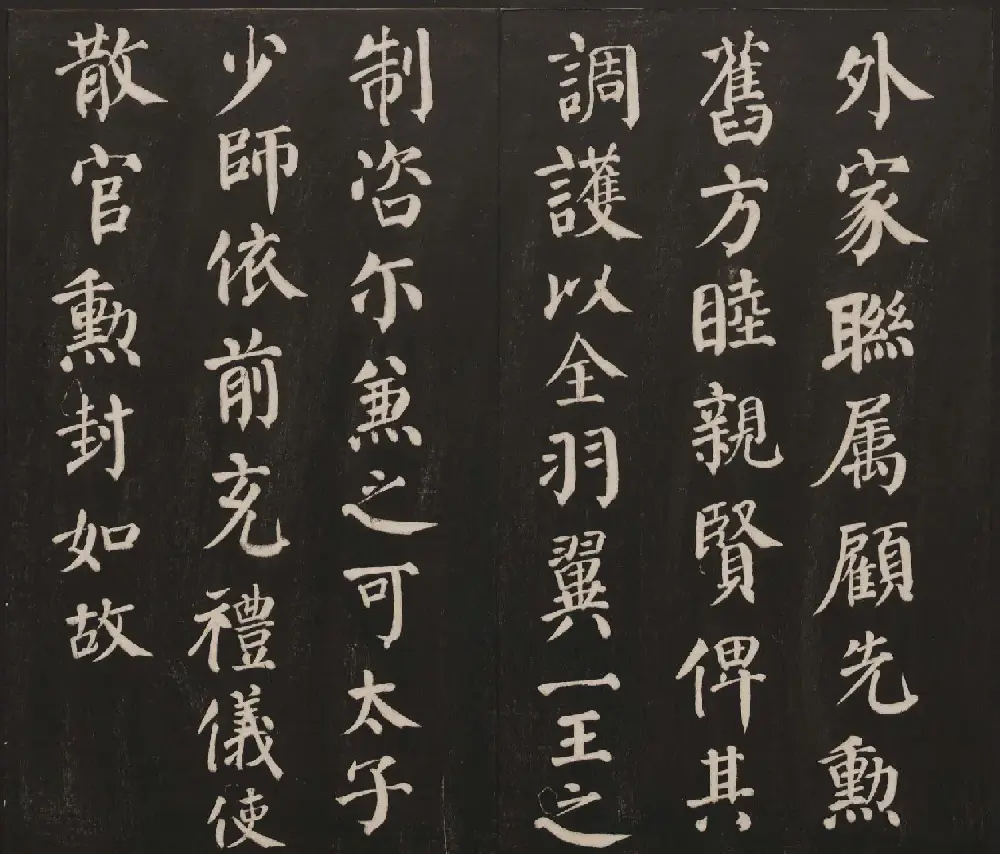 外家聯属顧先勳
舊方睦親賢俾其
調護以全羽翼一王之
制咨尔兼之可太子
少師依前充禮儀使
散官勳封如故